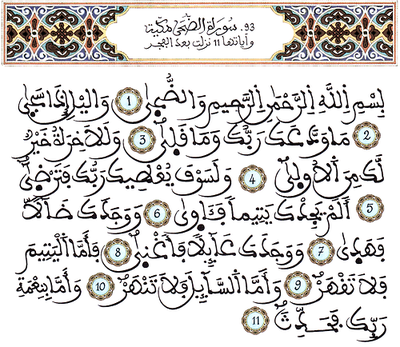 93. سورة الضحى مكية
وآياتها 11 نزلت بعد الفجر
بِسْمِ اللَّهِ الرَّحْمَٰنِ الرَّحِيمِ وَالضُّحَىٰ 1 وَاليْلِ إِذَا سَجَىٰ
2 مَا وَدَّعَكَ رَبُّكَ وَمَا قَلَىٰ 3 وَلَلَاخِرَةُ خَيْرٌ
لَّكَ مِنَ الُاولَىٰ 4 وَلَسَوْفَ يُعْطِيكَ رَبُّكَ فَتَرْضَىٰ
5 أَلَمْ يَجِدْكَ يَتِيماً فَـَٔاوَىٰ 6 وَوَجَدَكَ ضَآلًّا
فَهَدَىٰ 7 وَوَجَدَكَ عَآئِلًا فَأَغْنَىٰ 8 فَأَمَّا اَلْيَتِيمَ
فَلَا تَقْهَرْ 9 وَأَمَّا اَلسَّآئِلَ فَلَا تَنْهَرْ 10 وَأَمَّا بِنِعْمَةِ
رَبِّكَ فَحَدِّثْ 11